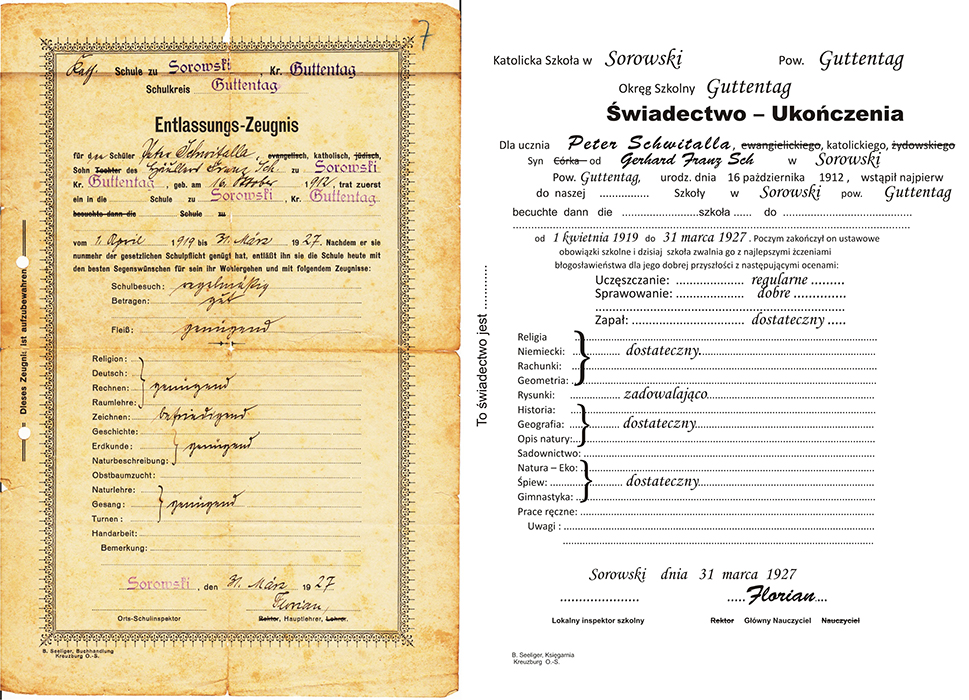 7
Kath. Schule zu Sorowski, Kr. Guttentag
Schulkreis Guttentag
Entlassungs-Zeugnis
für den Schüler Peter Schwitalla, evangelisch, katholisch, jüdisch,
Sohn Tochter des Franz Sch zu Sorowski
Kr. Guttentag, geb. am 16. Oktober 1912, trat zuerst
ein in die Schule zu Sorowski, Kr. Guttentag
besuchte dann die Schule zu
vom 1. April 1919 bis 31. März 1927. Nachdem er sie
nunmehr der gesetzlichen Schulpflicht genügt hat, entläßt ihn sie die Schule heute mit
den besten Segenswünschen für sein ihr Wohlergehen und mit folgendem Zeugnisse:
Schulbesuch: regelmäßig
Betragen: gut
Fleiß: genügend
Religion:
Deutsch:
Rechnen: genügend
Raumlehre:
Zeichnen: befriedigend
Geschichte:
Erdkunde: genügend
Naturbeschreibung:
Obstbaumzucht:
Naturlehre:
Gesang: genügend
Turnen:
Handarbeit:
Bemerkung:
Sorowski, den 31. März 1927
Florian,
Orts-Schulinspektor Rektor, Hauptlehrer, Lehrer.
B. Seeliger, Buchhandlung
Kreuzburg O.-S.
Dieses Zeugnis ist aufzubewahren.
Katolicka Szkoła w Sorowski Pow. Guttentag
Okręg Szkolny Guttentag
Świadectwo – Ukończenia
Dla ucznia Peter Schwitalla, ewangielickiego, katolickiego, żydowskiego
Syn Córka od Gerhard Franz Sch w Sorowski
Pow. Guttentag, urodz. dnia 16 października 1912, wstąpił najpierw
do naszej ............... Szkoły w Sorowski pow. Guttentag
becuchte dann die ........................szkoła ...... do ..........................................
od 1 kwietnia 1919 do 31 marca 1927. Poczym zakończył on ustawowe
obowiązki szkolne i dzisiaj szkoła zwalnia go z najlepszymi żczeniami
błogosławieństwa dla jego dobrej przyszłości z następującymi ocenami:
Uczęszczanie: ..................... regularne .........
Sprawowanie: ..................... dobre ..............
Zapał: ................................... dostateczny .....
Religia
Niemiecki: dostateczny
Rachunki:
Geometria:
Rysunki: zadowalająco
Historia:
Geografia: dostateczny
Opis natury:
Sadownictwo:
Natura – Eko:
Śpiew: dostateczny
Gimnastyka:
Prace ręczne:
Uwagi :
Sorowski dnia 31 marca 1927
.....................
.....Florian....
Lokalny inspektor szkolny Rektor Główny Nauczyciel Nauczyciel
B. Seeliger, Księgarnia
Kreuzburg O.-S.
To świadectwo jest ...........